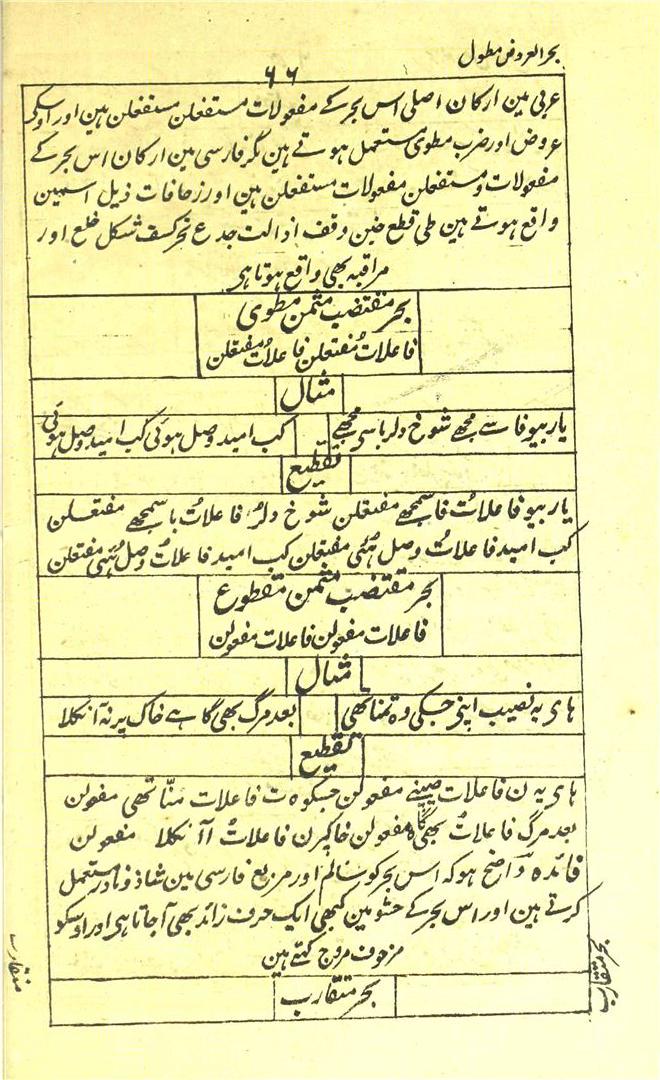 بحر العروض مطول
٦٦
عربی مین ارکان اصلی اس بحر کے مفعولات مستفعلن مستفعلن ہین اور اوسکے
عروض اور ضرب مطوی مستعمل ہوتے ہین مگر فارسی مین ارکان اس بحر کے
مفعولات و مستفعلن مفعولات مستفعلن ہین اور زحافات ذیل اسمین
واقع ہوتے ہین طی قطع خبن وقف اذالت جدع نحر کسف شکل خلع اور
مراقبہ بھی واقع ہوتا ہی
بحر مقتضب مثمن مطوی
فاعلاتُ مفتعلن فاعلاتُ مفتعلن
مثال
یار بیوفا سے مجھے شوخ دلربا سی مجھے
کب امید وصل ہوئی کب امید وصل ہوئی
تقطیع
یار بیو فاعلاتُ فا سمجھے مفتعلن شوخ دلرُ فاعلاتُ با سمجھے مفتعلن
کب امید فاعلاتُ وصل ہُئی مفتعلن کب امید فاعلاتُ وصل ہُئی مفتعلن
بحر مقتضب مثمن مقطوع
فاعلات مفعولن فاعلات مفعولن
مثال
ہای یہ نصیب اپنی جسکی وہ تمنا تھی
بعد مرگ بھی گاہے خاک پر نہ آ نکلا
تقطیع
ہای یہ ن فاعلات صیبپنے مفعولن جسکوہ ت فاعلات منّا تھی مفعولن
بعد مرگ فاعلاتُ بھی گاہے مفعولن خاکپر ن فاعلاتُ اآنکلا مفعولن
فائدہ واضح ہو کہ اس بحر کو سالم اور مربع فارسی مین شاذ و نادر مستعمل
کرتے ہین اور اس بحر کے حشو مین کبھی ایک حرف زائد بھی آجاتا ہی اور اوسکو
مزحوف مروج کہتے ہین
بحر متقارب
بحر متقارب
متقارب